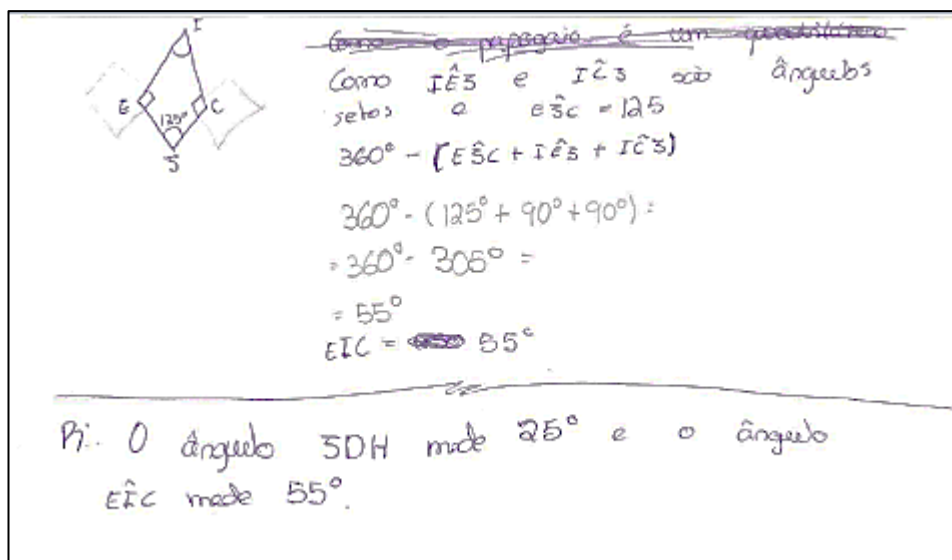 I
E
C
125º
S
Como o papagaio é um quadrilátero
Como IÊS e IĈS são ângulos
retos e eŝc = 125
360º - (EŜC + IÊS + IĈS)
360º - (125º + 90º + 90º) =
= 360º - 305º =
= 55º
EIC = 55º
R: O ângulo SDH mede 25º e o ângulo
EÎC mede 55º.